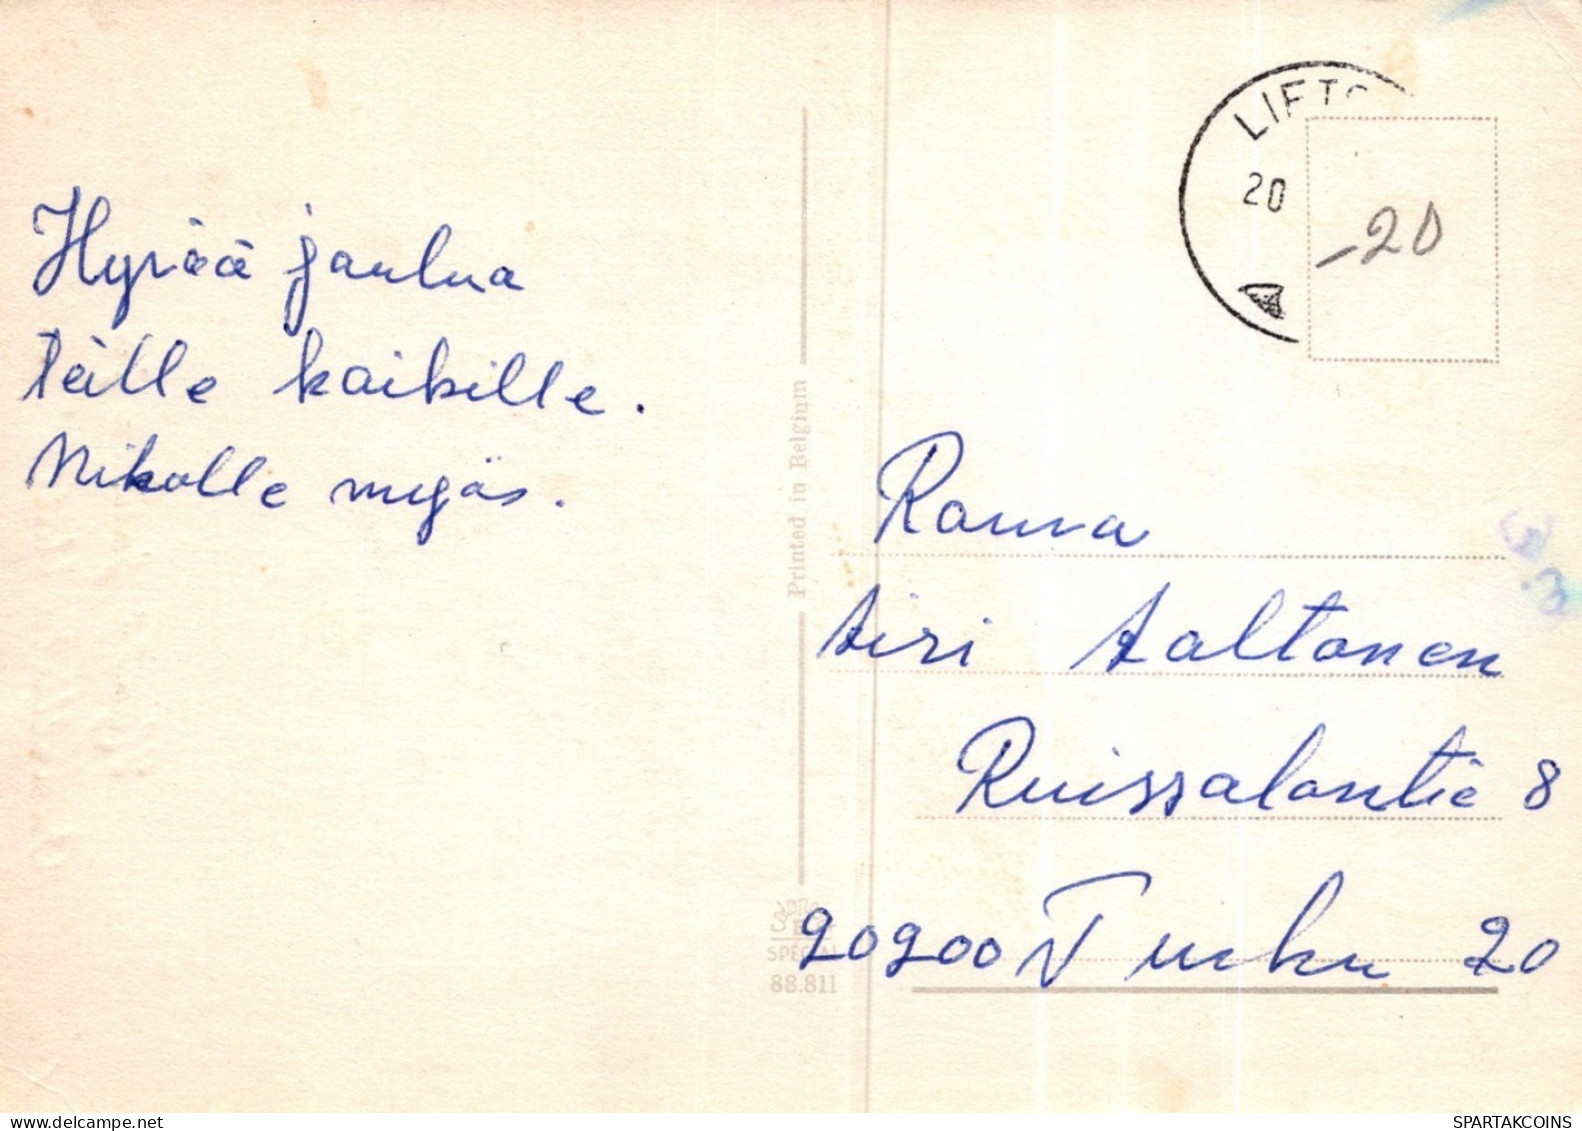 Hyvää joulua
teille kaikille.
Nikolle myös.
LIETO
20
-20
Printed in Belgium
SPECIAL
88.811
Rouva
Airi Aaltonen
Ruissalontie 8
20200 Turku 20
SPARTAKCOINS.COM